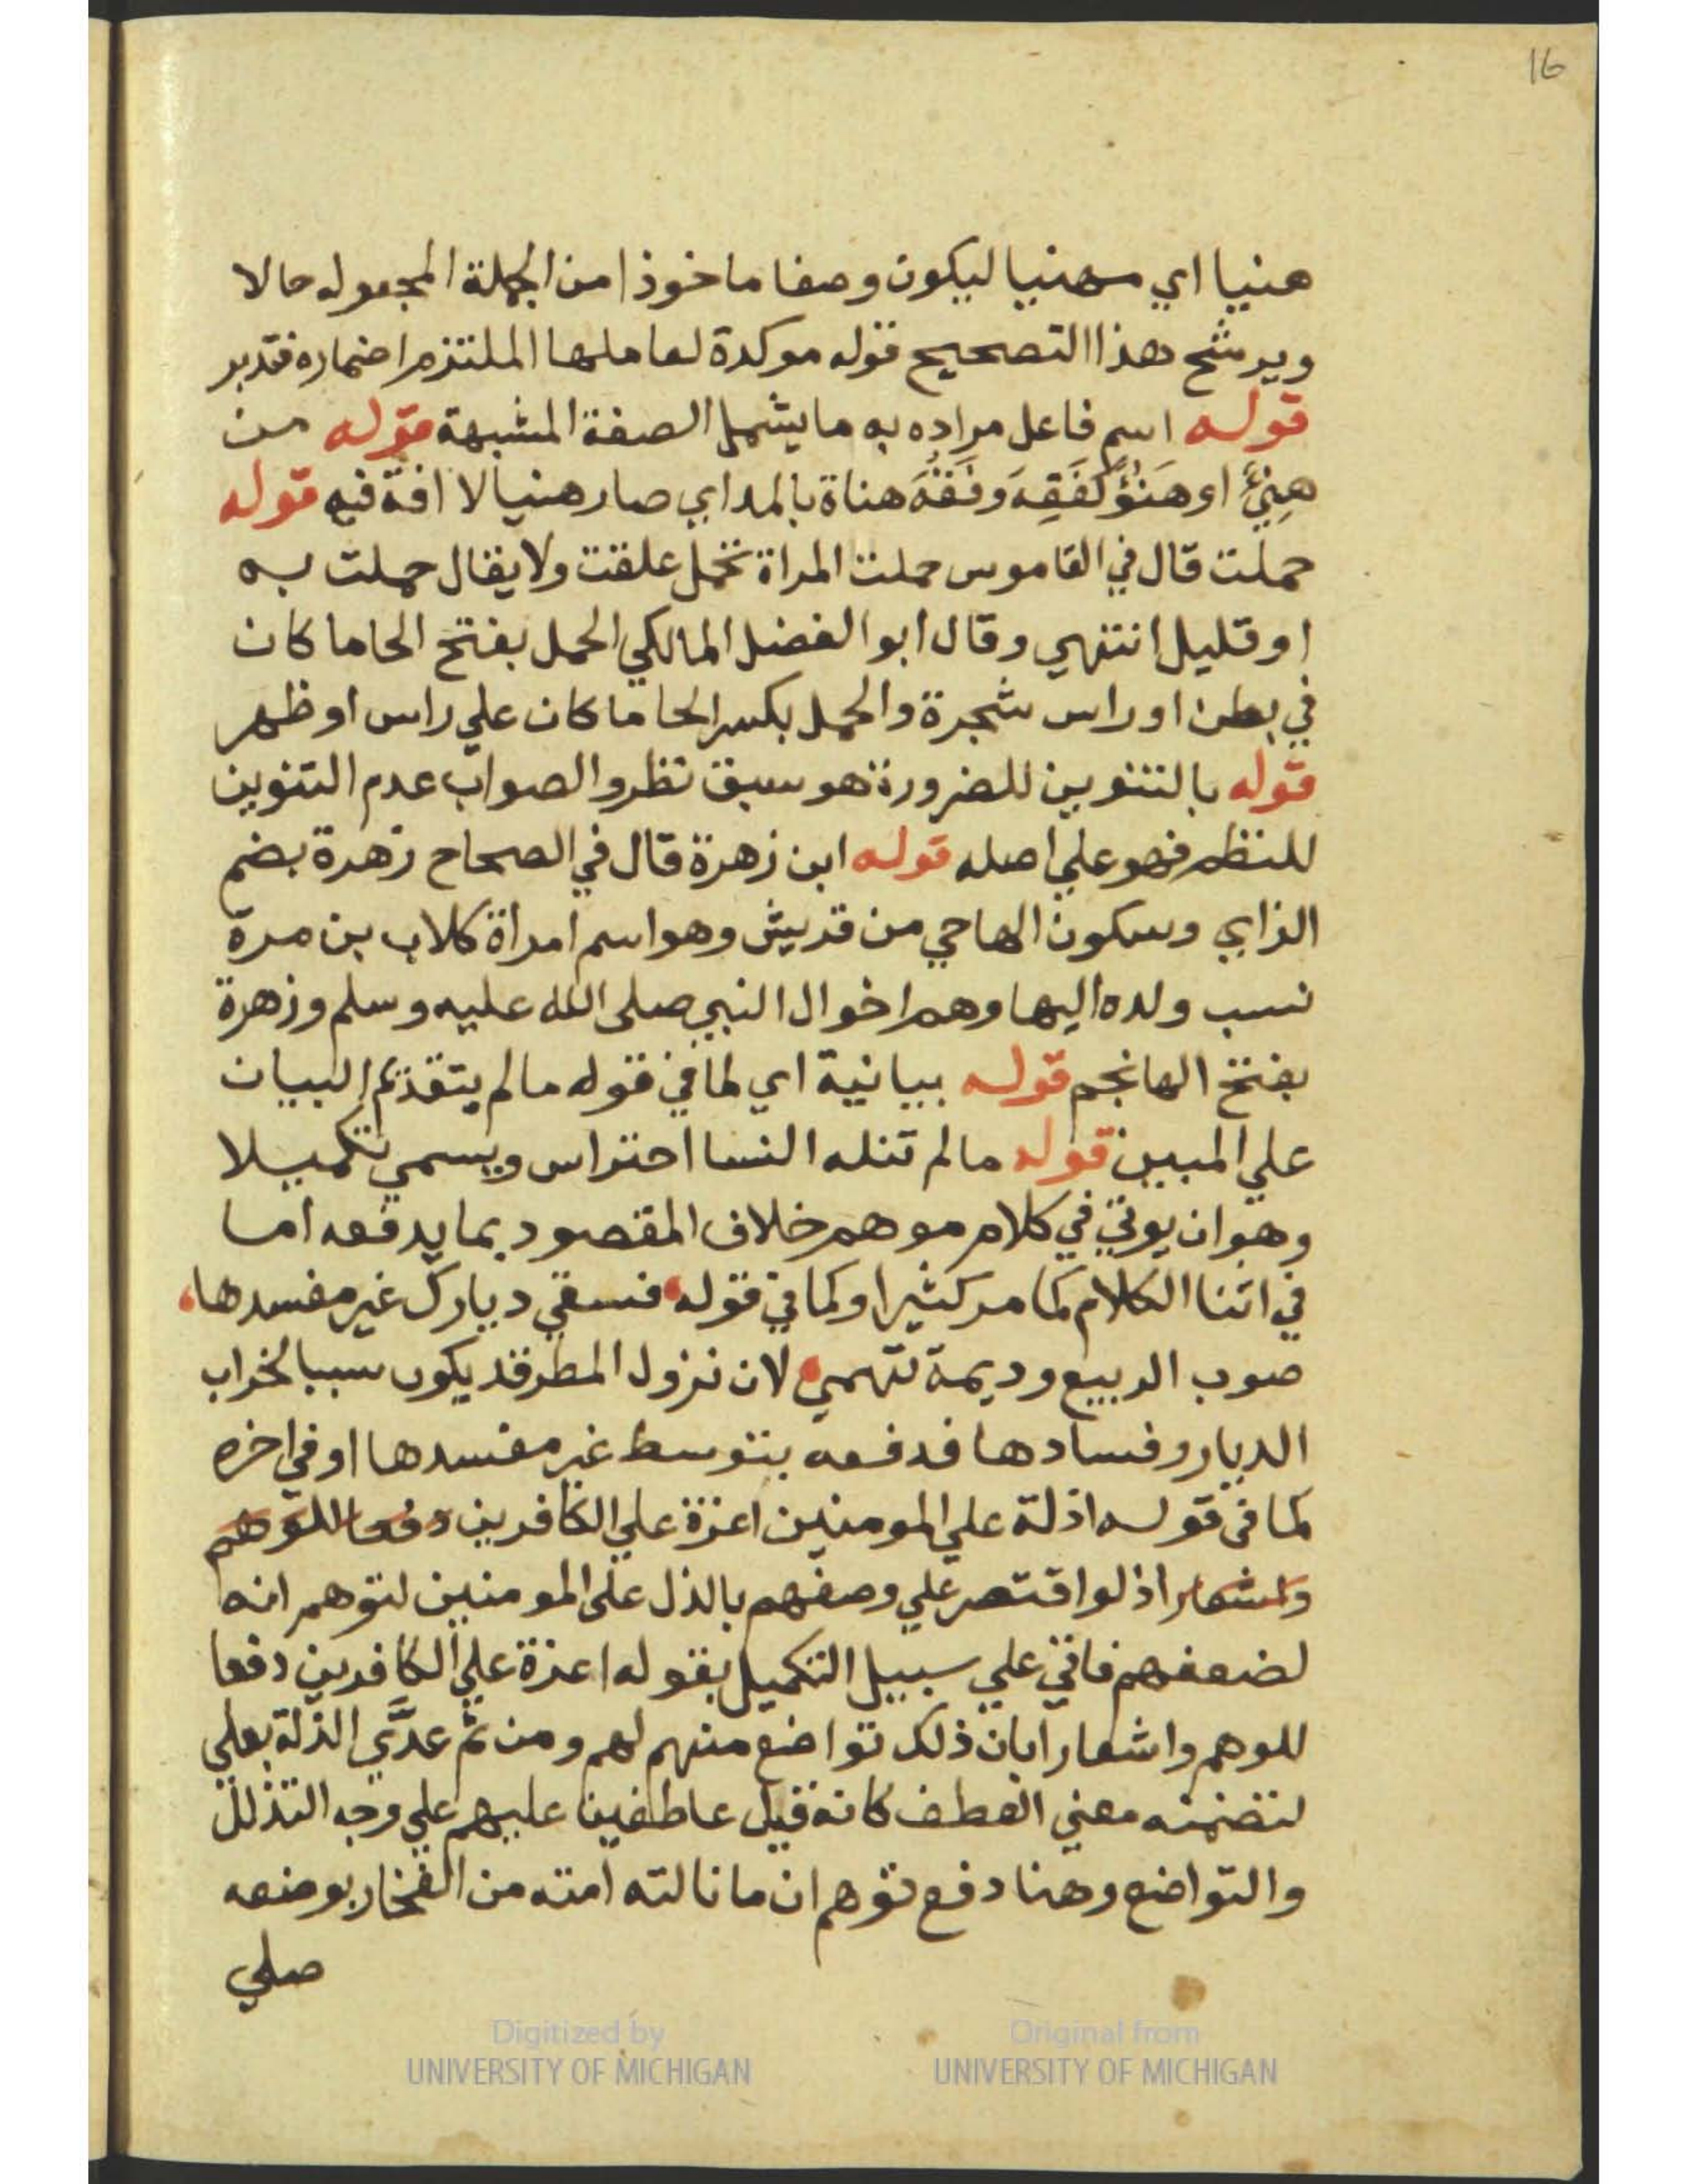 16
هنيا اي مهنيا ليكون وصفا ماخوذا من الجملة المجعوله حالا
ويرشح هذا التصحيح قوله موكدة لعاملها الملتزم اضماره فتدبر
قوله اسم فاعل مراده به ما يشمل الصفة المشبهة قوله من
هنِئَ او هَنُؤَ كَفَقِهَ وفَقُهَ هناة بالمد اي صار هنيا لا افة فيه قوله
حملت قال في القاموس حملت المراة تحمل علقت ولا يقال حملت به
او قليل انتهي وقال ابو الفضل المالكي الحمل بفتح الحا ما كان
في بطن او راس شجرة والحمل بكسر الحا ما كان علي راس او ظهر
قوله بالتنوين للضرورة هو سبق نظر والصواب عدم التنوين
للنظم فهو علي اصله قوله ابن زهرة قال في الصحاح زهرة بضم
الزاي وسكون الها حي من قريش وهو اسم امراة كلاب بن مرة
نسب ولده اليها وهم اخوال النبي صلى الله عليه وسلم وزهرة
بفتح الها نجم قوله بيانية اي لما في قوله ما لم يتقدم البيان
علي المبين قوله ما لم تنله النسا احتراس ويسمي تكميلا
وهو ان يوتي في كلام موهم خلاف المقصود بما يدفعه اما
في اثنا الكلام كما مر كثيرا وكما في قوله فسقي ديارك غير مفسدها
صوب الربيع وديمة تهمي لان نزول المطر قد يكون سببا لخراب
الديار وفسادها فدفعه بتوسط غير مفسدها او في اخره
كما في قوله اذلة علي المومنين اعزة علي الكافرين دفعا للوهم
واشعارا اذ لو اقتصر علي وصفهم بالذل على المومنين لتوهم انه
لضعفهم فاتي علي سبيل التكميل بقوله اعزة علي الكافرين دفعا
للوهم واشعارا بان ذلك تواضع منهم لهم ومن ثم عدَّي الذلة بعلي
لتضمنه معني العطف كانه قيل عاطفين عليهم علي وجه التذلل
والتواضع وهنا دفع توهم ان ما نالته امنه من الفخار بوضعه
صلي
Digitized by
UNIVERSITY OF MICHIGAN
Original from
UNIVERSITY OF MICHIGAN